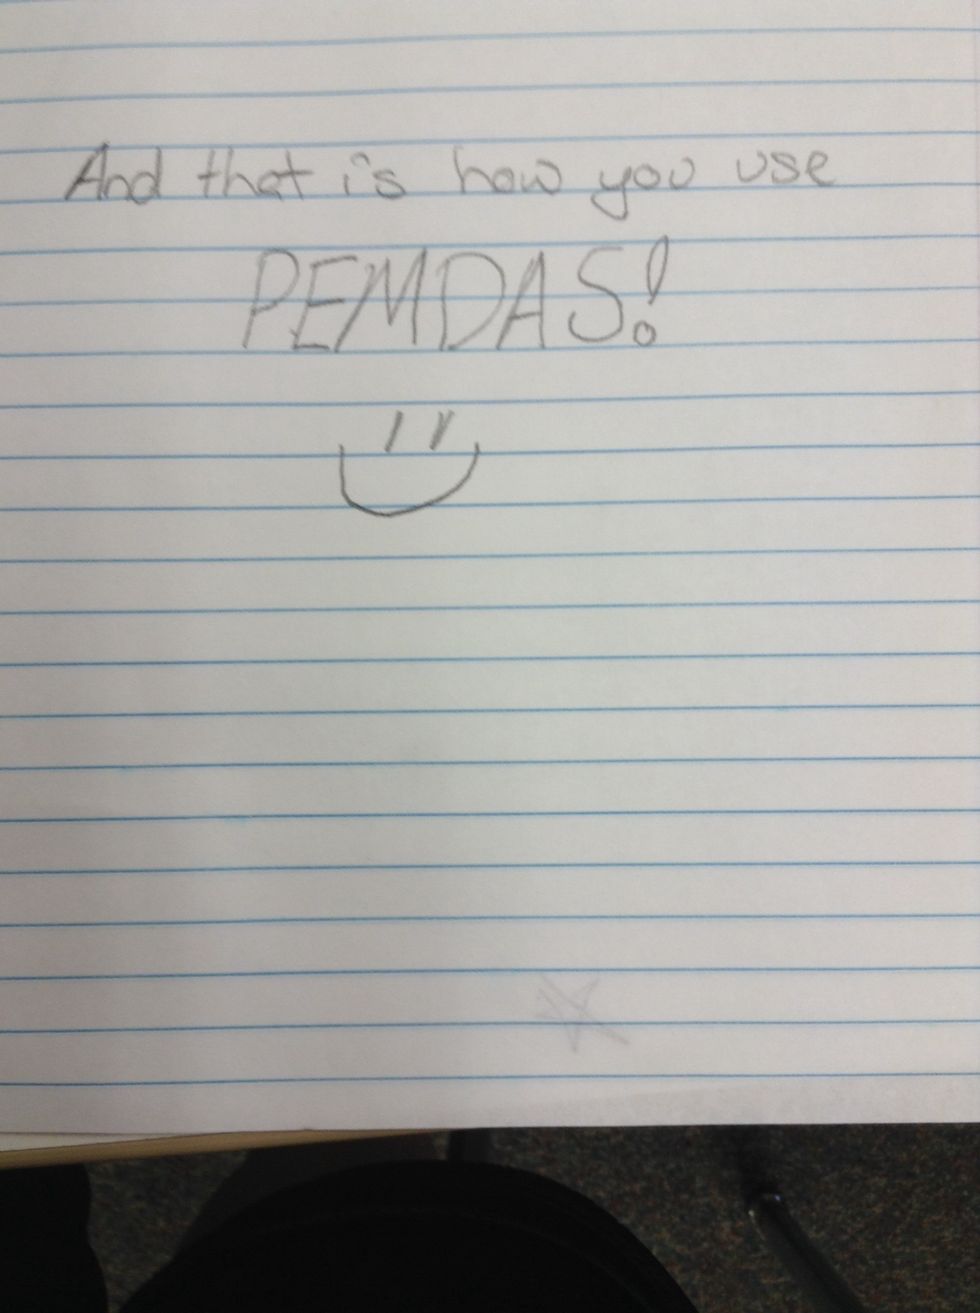 And that is how you use
PEMDAS!